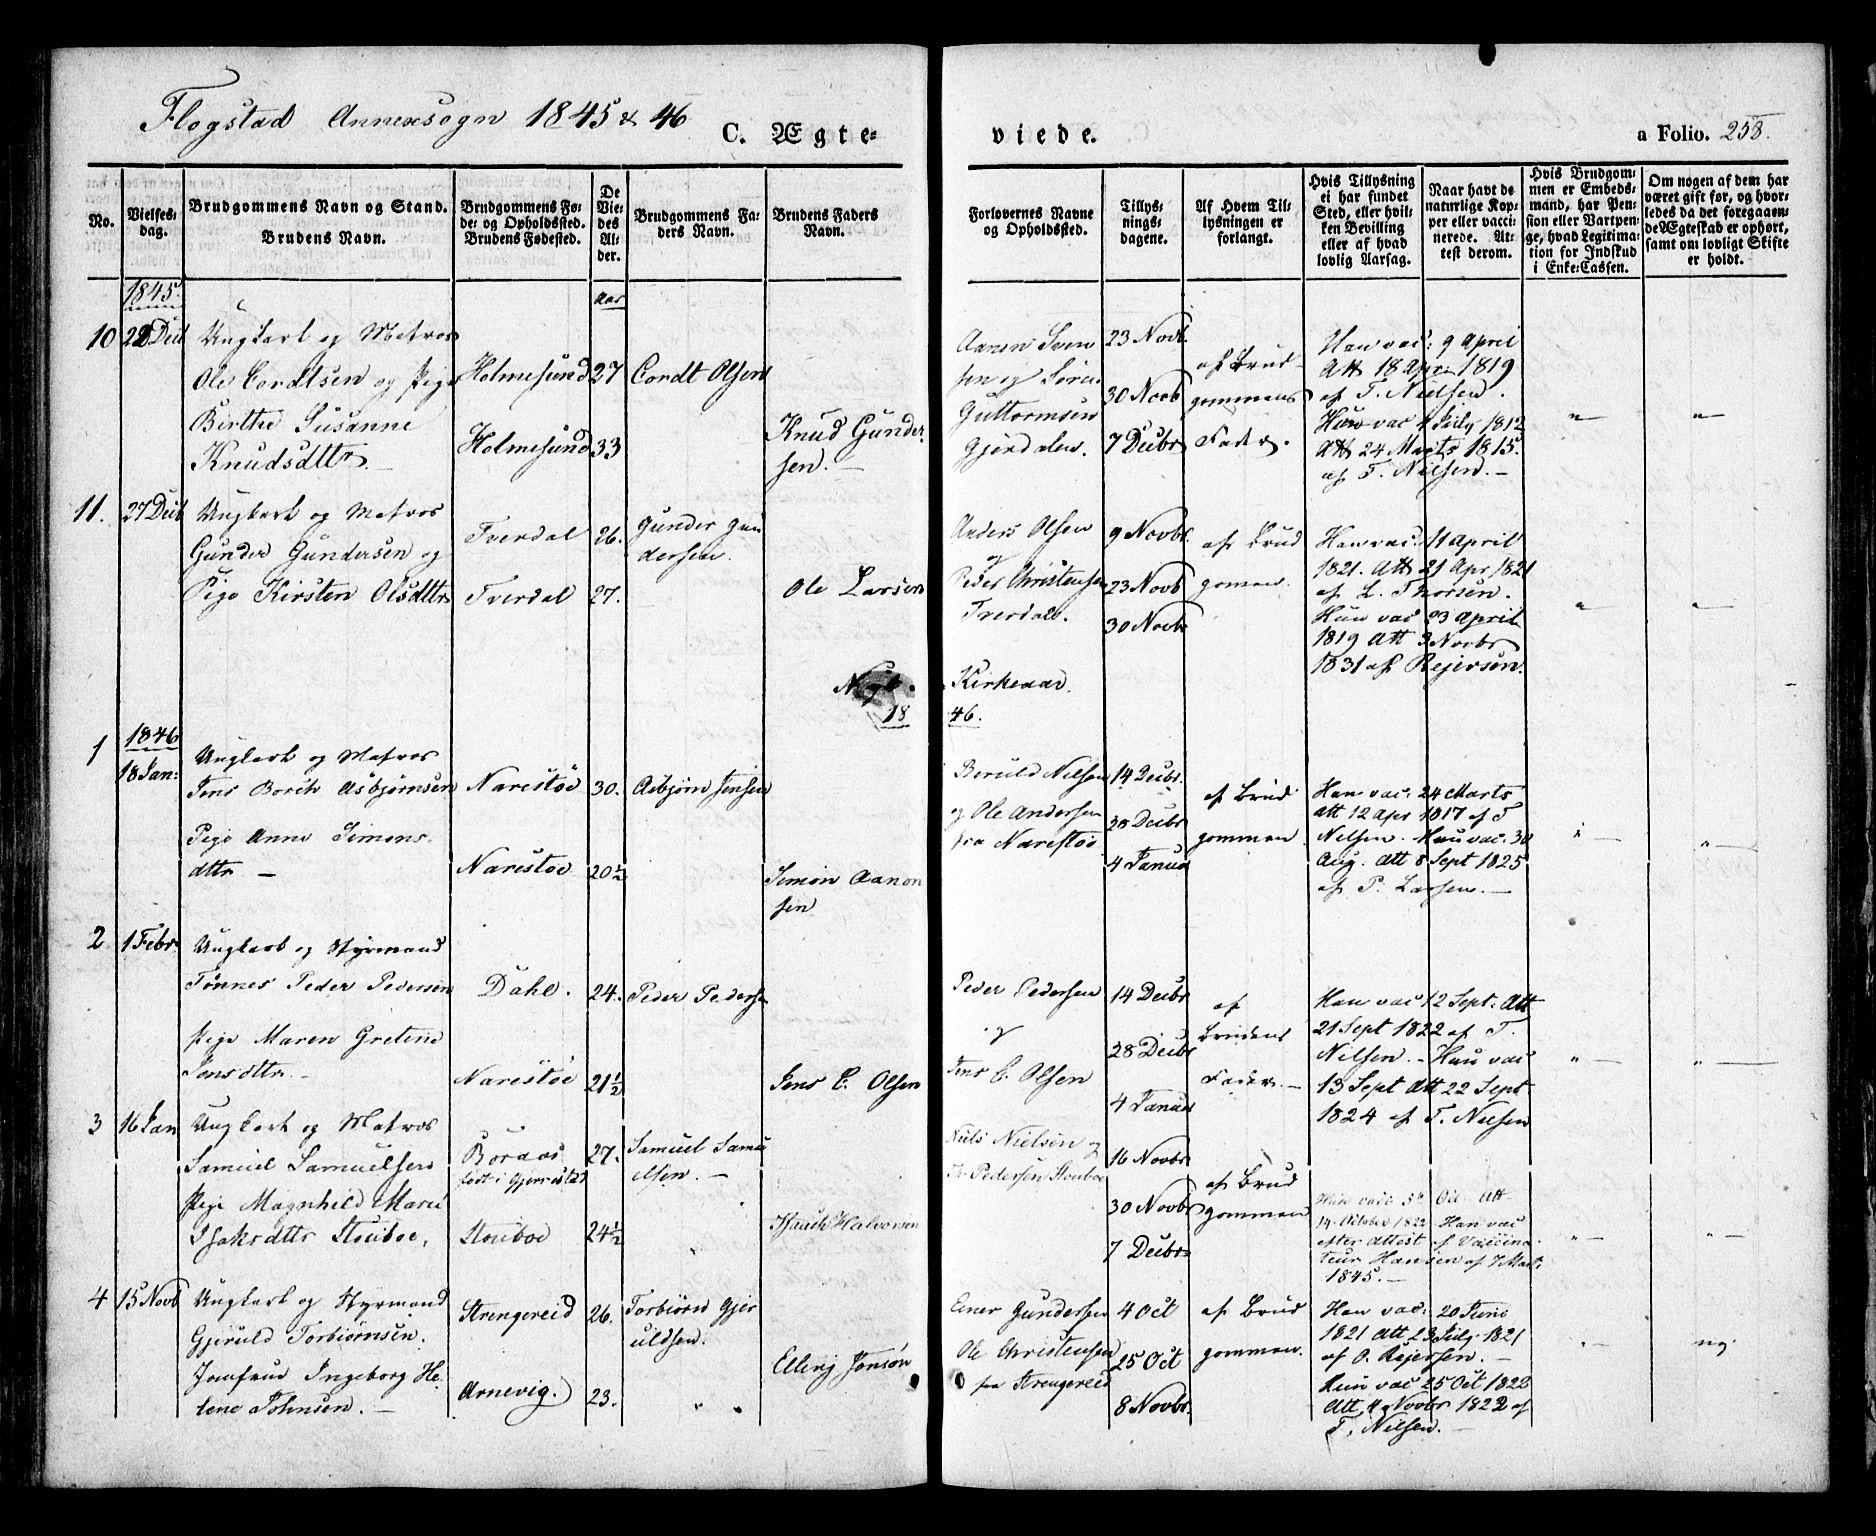 Flogstad Annexsogn 1845 & 46
C. Ægte-
viede.
a Folio. 258.
No.
Vielses-
dag.
Brudgommens Navn og Stand.
Brudens Navn.
Brudgommens Fø-
de- og Opholdssted.
Brudens Fødested.
De
Vie-
des
Al-
der.
Brudgommens Fa-
ders Navn.
Brudens Faders
Navn.
Forlovernes Navne
og Opholdssted.
Tillys-
nings-
dagene.
Af Hvem Til-
lysningen er
forlangt.
Hvis Tillysning
ei har fundet
Sted, eller hvil-
ken Bevilling
eller af hvad
lovlig Aarsag.
Naar havt de
naturlige Kop-
per eller vacci-
nerede. At-
test derom.
Hvis Brudgom-
men er Embeds-
mand, har Pen-
sion eller Vartpen-
ge, hvad Legitima-
tion for Indskud
i Enke-Cassen.
Om nogen af dem har
været gift før, og hvor-
ledes da det foregaaen-
de Ægteskab er ophørt,
samt om lovligt Skifte
er holdt.
1845.
Aar
10 22 Decb
Ungkarl og Matros
Ole Cordtsen og Pige
Birthe Susanne
Knudsdttr. -
Holmesund 27
Holmesund 33
Cordt Olsen
Knud Gunder-
sen. -
Aanen Sven
sen og Søren
Guttormsen
Gjerdalen.
23 Novb.
30 Novb
7 Decbr
af Brud-
gommens
Fader.
Han vac: 9 April
Att 18 Apr 1819
af T. Nielsen.
Hun vac 1 July 1812
Att 24 Marts 1815.
af T. Nielsen. -
" "
11. 27 Decb
Ungkarl og Matros
Gunder Gundersen og
Pige Kirsten Olsdttr
Tverdal 26.
Tverdal 27.
Gunder Gun
dersen.
Ole Larsen
Anders Olsen
og
Peder Christensen
Tverdal.
9 Novbr.
23 Novb
30 Novbr
af Brud
gomen.
Han vac. 11 April
1821. Att 21 Apr 1821
af L. Thorsen.
Hun vac 23 April
1819 Att 3 Novbr
1831 af Rejersen.
" "
Nyt. Kirkeaar.
18 46.
1846
1 18 Jan:
Ungkarl og Matros
Jens Borith Asbjørnsen
Pige Anne Simons-
dttr -
Narestøe 30.
Narestøe 20½
Asbjørn Jensen
Simon Aanon
sen
Beruld Nilsen
og Ole Andersen
fra Narestøe
14 Decbr.
28 Decbr
4 Januar
af Brud
gommen
Han vac: 24 Marts
Att 12 Apr 1817 af T
Nilsen. Hun vac. 30
Aug. Att 8 Sept 1825
af P. Larsen. -
" "
2 1 Febr
Ungkarl og Styrmand
Tønnes Peder Pedersen
Pige Maren Gretine
Jensdttr. -
Dahl. 24.
Narestøe 21½
Peder Pedersen
Jens C. Olsen
Peder Pedersen
og
Jens C. Olsen
14 Decbr
28 Decbr
4 Januar
af
Brudens
Fader. -
Han vac 12 Sept. Att
21 Sept 1822 af T.
Nilsen. - Hun vac
13 Sept Att 22 Sept
1824 af T. Nilsen
" "
3 16 Jan
Ungkarl og Matros
Samuel Samuelsen
Pige Magnhild Marie
Isaksdttr Stouboe.
Boraas 27.
født i Gjerrestad
Stouboe 24½
Samuel Samu
elsen. -
Isach Halvorsen
Niels Nielsen og
Th. Pedersen Stouboe
16 Novbr
30 Novbr
7 Decbr
af Brud
gommen
Hun vac 3 Oct Att
14 October 1822 Han vac
efter Attest af Vaccina-
teur Hansen af 7 Mart
1845. -
" "
4 15 Novb
Ungkarl og Styrmand
Gjeruld Torbiørnsen.
Jomfrue Ingeborg He-
lene Johnsen. -
Strengereid 26.
Arnevig. 23.
Torbiørn Gjer
uldsen.
" "
Elling Jonsøn
Einer Gundersen
Ole Christensen
fra Strengereid
4 Oct
25 Oct
8 Novbr.
af Brud
gommen.
Han vac: 20 Juni
1821 Att 23 July 1821
af O. Rejersen. -
Hun vac 25 Oct 1822
Att 4 Novbr 1822 af
T. Nilsen. -
" nej